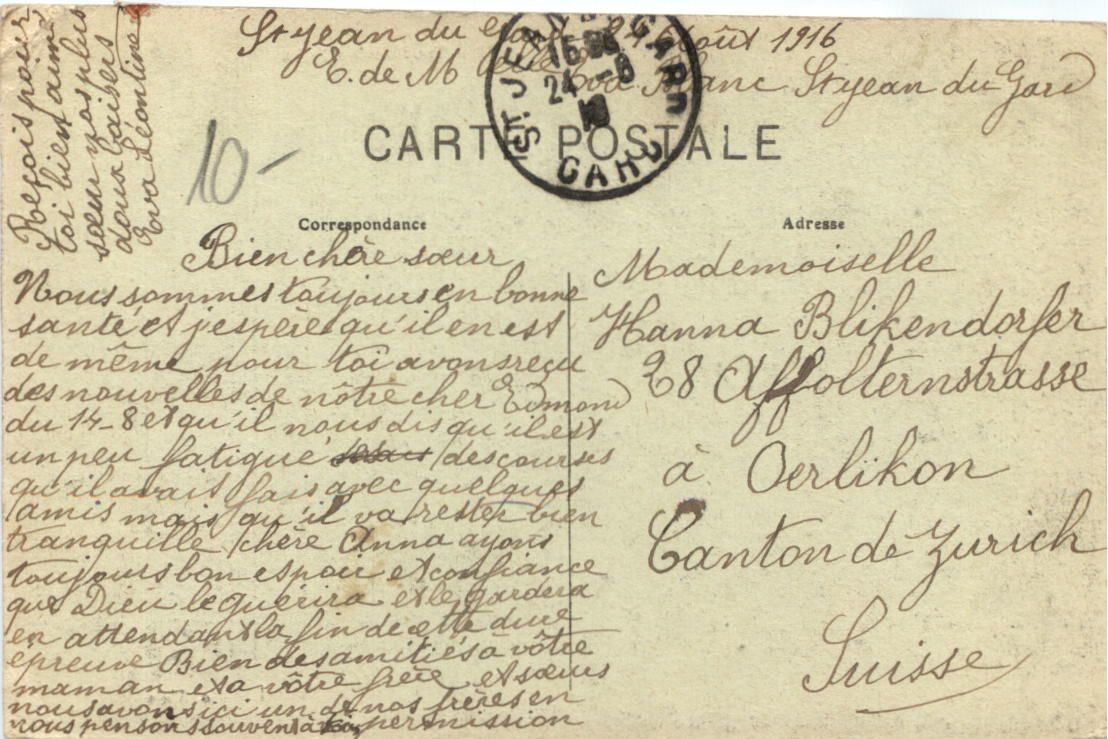 St Jean du Gard août 1916
E. de M Eva Blanc St Jean du Gard
ST JEAN DU GARD
24 - 8
GARD
CARTE POSTALE
10-
Correspondance
Bien chère sœur
Nous sommes toujours en bonne
santé et j'espère qu'il en est
de même pour toi avons reçu
des nouvelles de nôtre cher Edmond
du 14-8 et qu'il nous dis qu'il est
un peu fatigué des courses
qu'il avait fais avec quelques
amis mais qu'il va rester bien
tranquille chère Anna ayons
toujours bon espoir et confiance
que Dieu le guérira et le gardera
en attendant la fin de cette dure
épreuve Bien des amitiés à vôtre
maman et a vôtre frère et sœurs
nous avons ici un de nos frères en
permission
nous pensons souvent à toi
Reçois pour
toi bien aimée
sœur nos plus
doux baisers
Eva Léontine
Adresse
Mademoiselle
Hanna Blikendorfer
28 Affolternstrasse
à Oerlikon
Canton de Zurich
Suisse